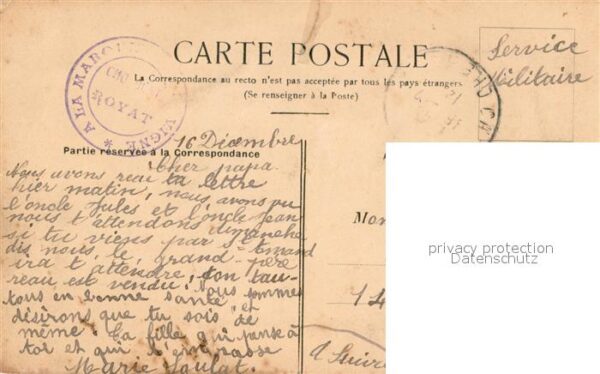 CARTE POSTALE
La Correspondance au recto n'est pas acceptée par tous les pays étrangers
(Se renseigner à la Poste)
Service
Militaire
A LA MARQU
VIGNE
ROYAT
Partie réservée à la Correspondance
16 Décembre
Cher papa
Nous avons reçu ta lettre
hier matin, nous avons vu
l'oncle Jules et l'oncle Jean
nous t attendons dimanche
si tu viens par St Amand
dis nous le, grand-père
ira t attendre, ton tau-
reau est vendu, nous sommes
tous en bonne santé et
désirons que tu sois de
même. Ta fille qui pense à
toi et qui t embrasse
Marie
Mon
14
A Suivre
privacy protection
Datenschutz